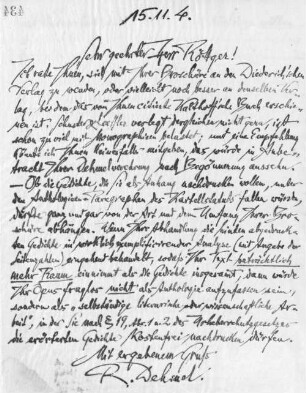 15.11.
Sehr geehrter Herr Röttger!
Ich rate Ihnen, sich mit Ihrer Broschüre an den Diederichschen
Verlag zu wenden, oder vielleicht noch besser an denselben Ver-
lag, bei dem das von Ihnen Buch erschie-
nen ist. Schuster & Loeffler verlegt dergleichen nicht gern, ist
schon zu viel mit Monographien belastet, und eine Empfehlung
könnte ich Ihnen mitgeben, das würde in Anbe-
tracht Ihrer Dehmelverehrung nach aussehn.
— Ob die Gedichte, die Sie als Anhang nachdrucken wollen, unter
den Anthologieen-Paragraphen des fallen würden,
dürfte ganz und gar von der Art und dem Umfang Ihrer Bro-
schüre abhängen. Wenn Ihre Abhandlung die hinten abgedruck-
ten Gedichte in wörtlich exemplifizierender Analyse (mit Angabe der
Seitenzahlen) eingehend behandelt, sodaß Ihr Text beträchtlich
mehr Raum einnimmt als die Gedichte insgesamt, dann würde
Ihr Opus fraglos nicht als Anthologie aufzufassen sein,
sondern als „selbständige literarische oder wissenschaftliche Ar-
beit", in der Sie nach § 19, No. 1 u. 2 des Urheberrechtsgesetzes
die erörterten Gedichte kostenfrei nachdrucken dürfen.
Mit ergebenem Gruß
R. Dehmel.